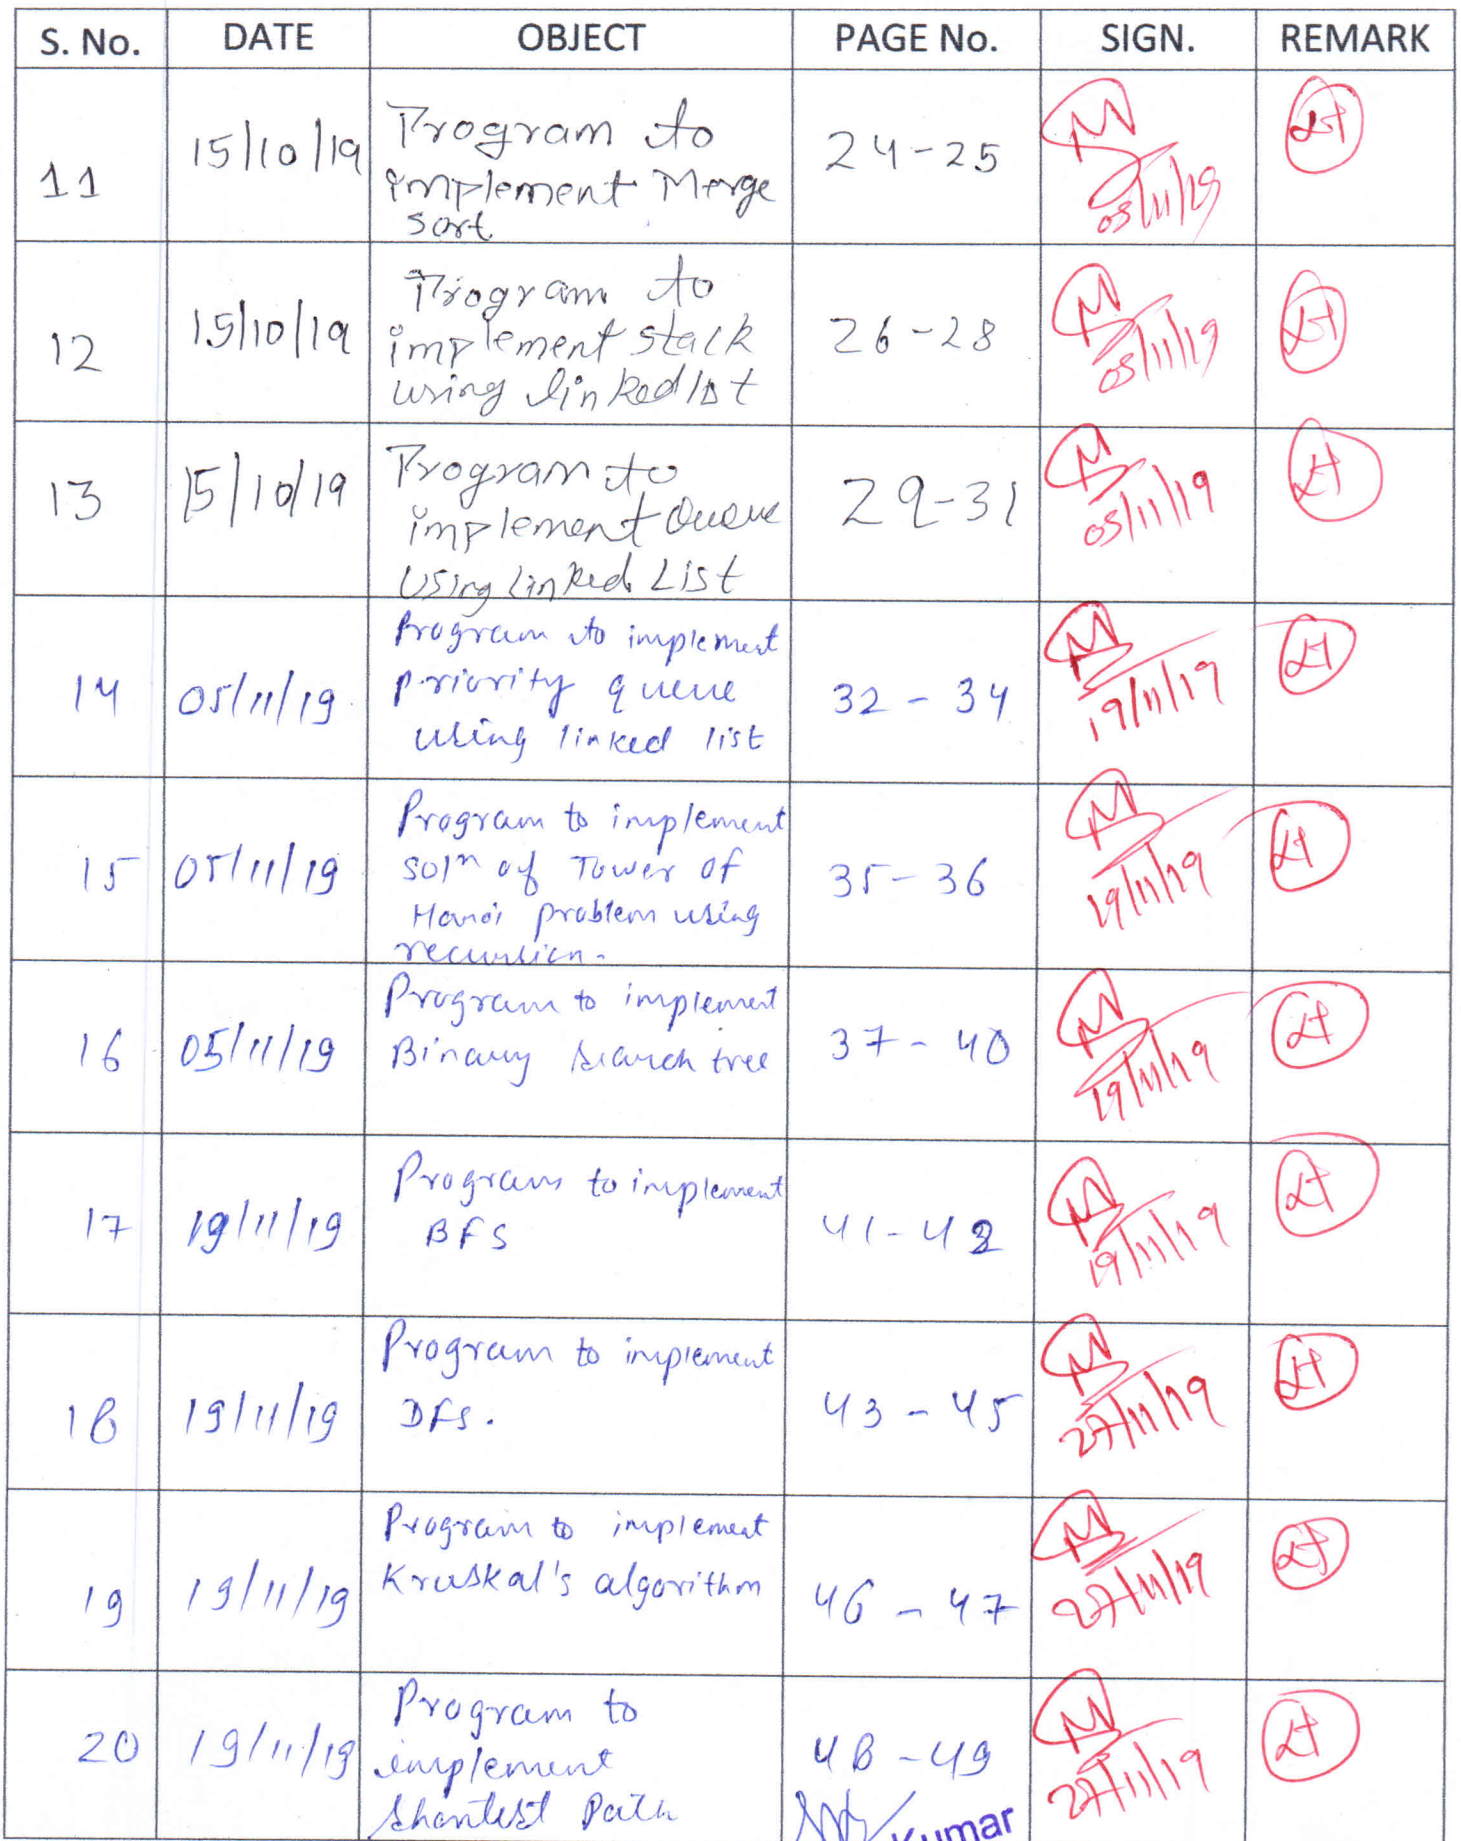 S. No. DATE OBJECT PAGE No. SIGN. REMARK
11 15/10/19 Program to 24-25
implement Merge
sort
05/11/19
12 15/10/19 Program to 26-28
implement stack
using linkedlist
05/11/19
13 15/10/19 Program to 29-31
implement Queue
Using Linked List
05/11/19
14 05/11/19 Program to implement 32 - 34
priority queue
using linked list
19/11/19
15 05/11/19 Program to implement 35 - 36
solⁿ of Tower of
Hanoi problem using
recursion.
19/11/19
16 05/11/19 Program to implement 37 - 40
Binary search tree
19/11/19
17 19/11/19 Program to implement 41 - 42
BFS
19/11/19
18 19/11/19 Program to implement 43 - 45
DFS.
27/11/19
19 19/11/19 Program to implement 46 - 47
Kruskal's algorithm
27/11/19
20 19/11/19 Program to 48 - 49
implement
shortest Path
27/11/19
Kumar